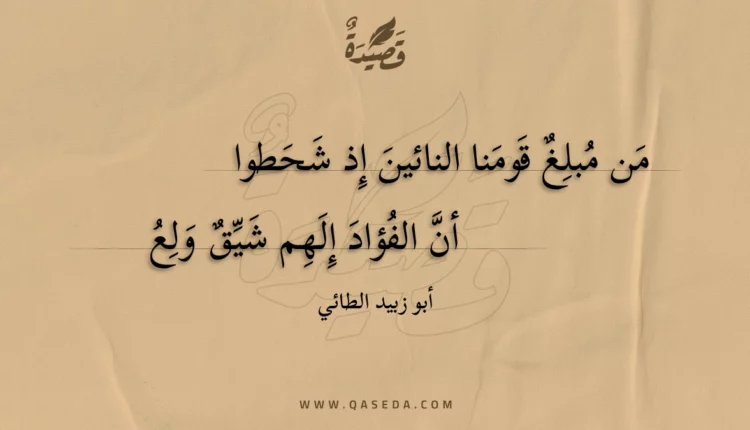 قَصِيدَةٌ
مَن مُبلِغٌ قَومَنا النائينَ إِذ شَحَطوا
أنَّ الفُؤادَ إِلَهِم شَيِّقٌ وَلِعُ
أبو زبيد الطائي
WWW.QASEDA.COM